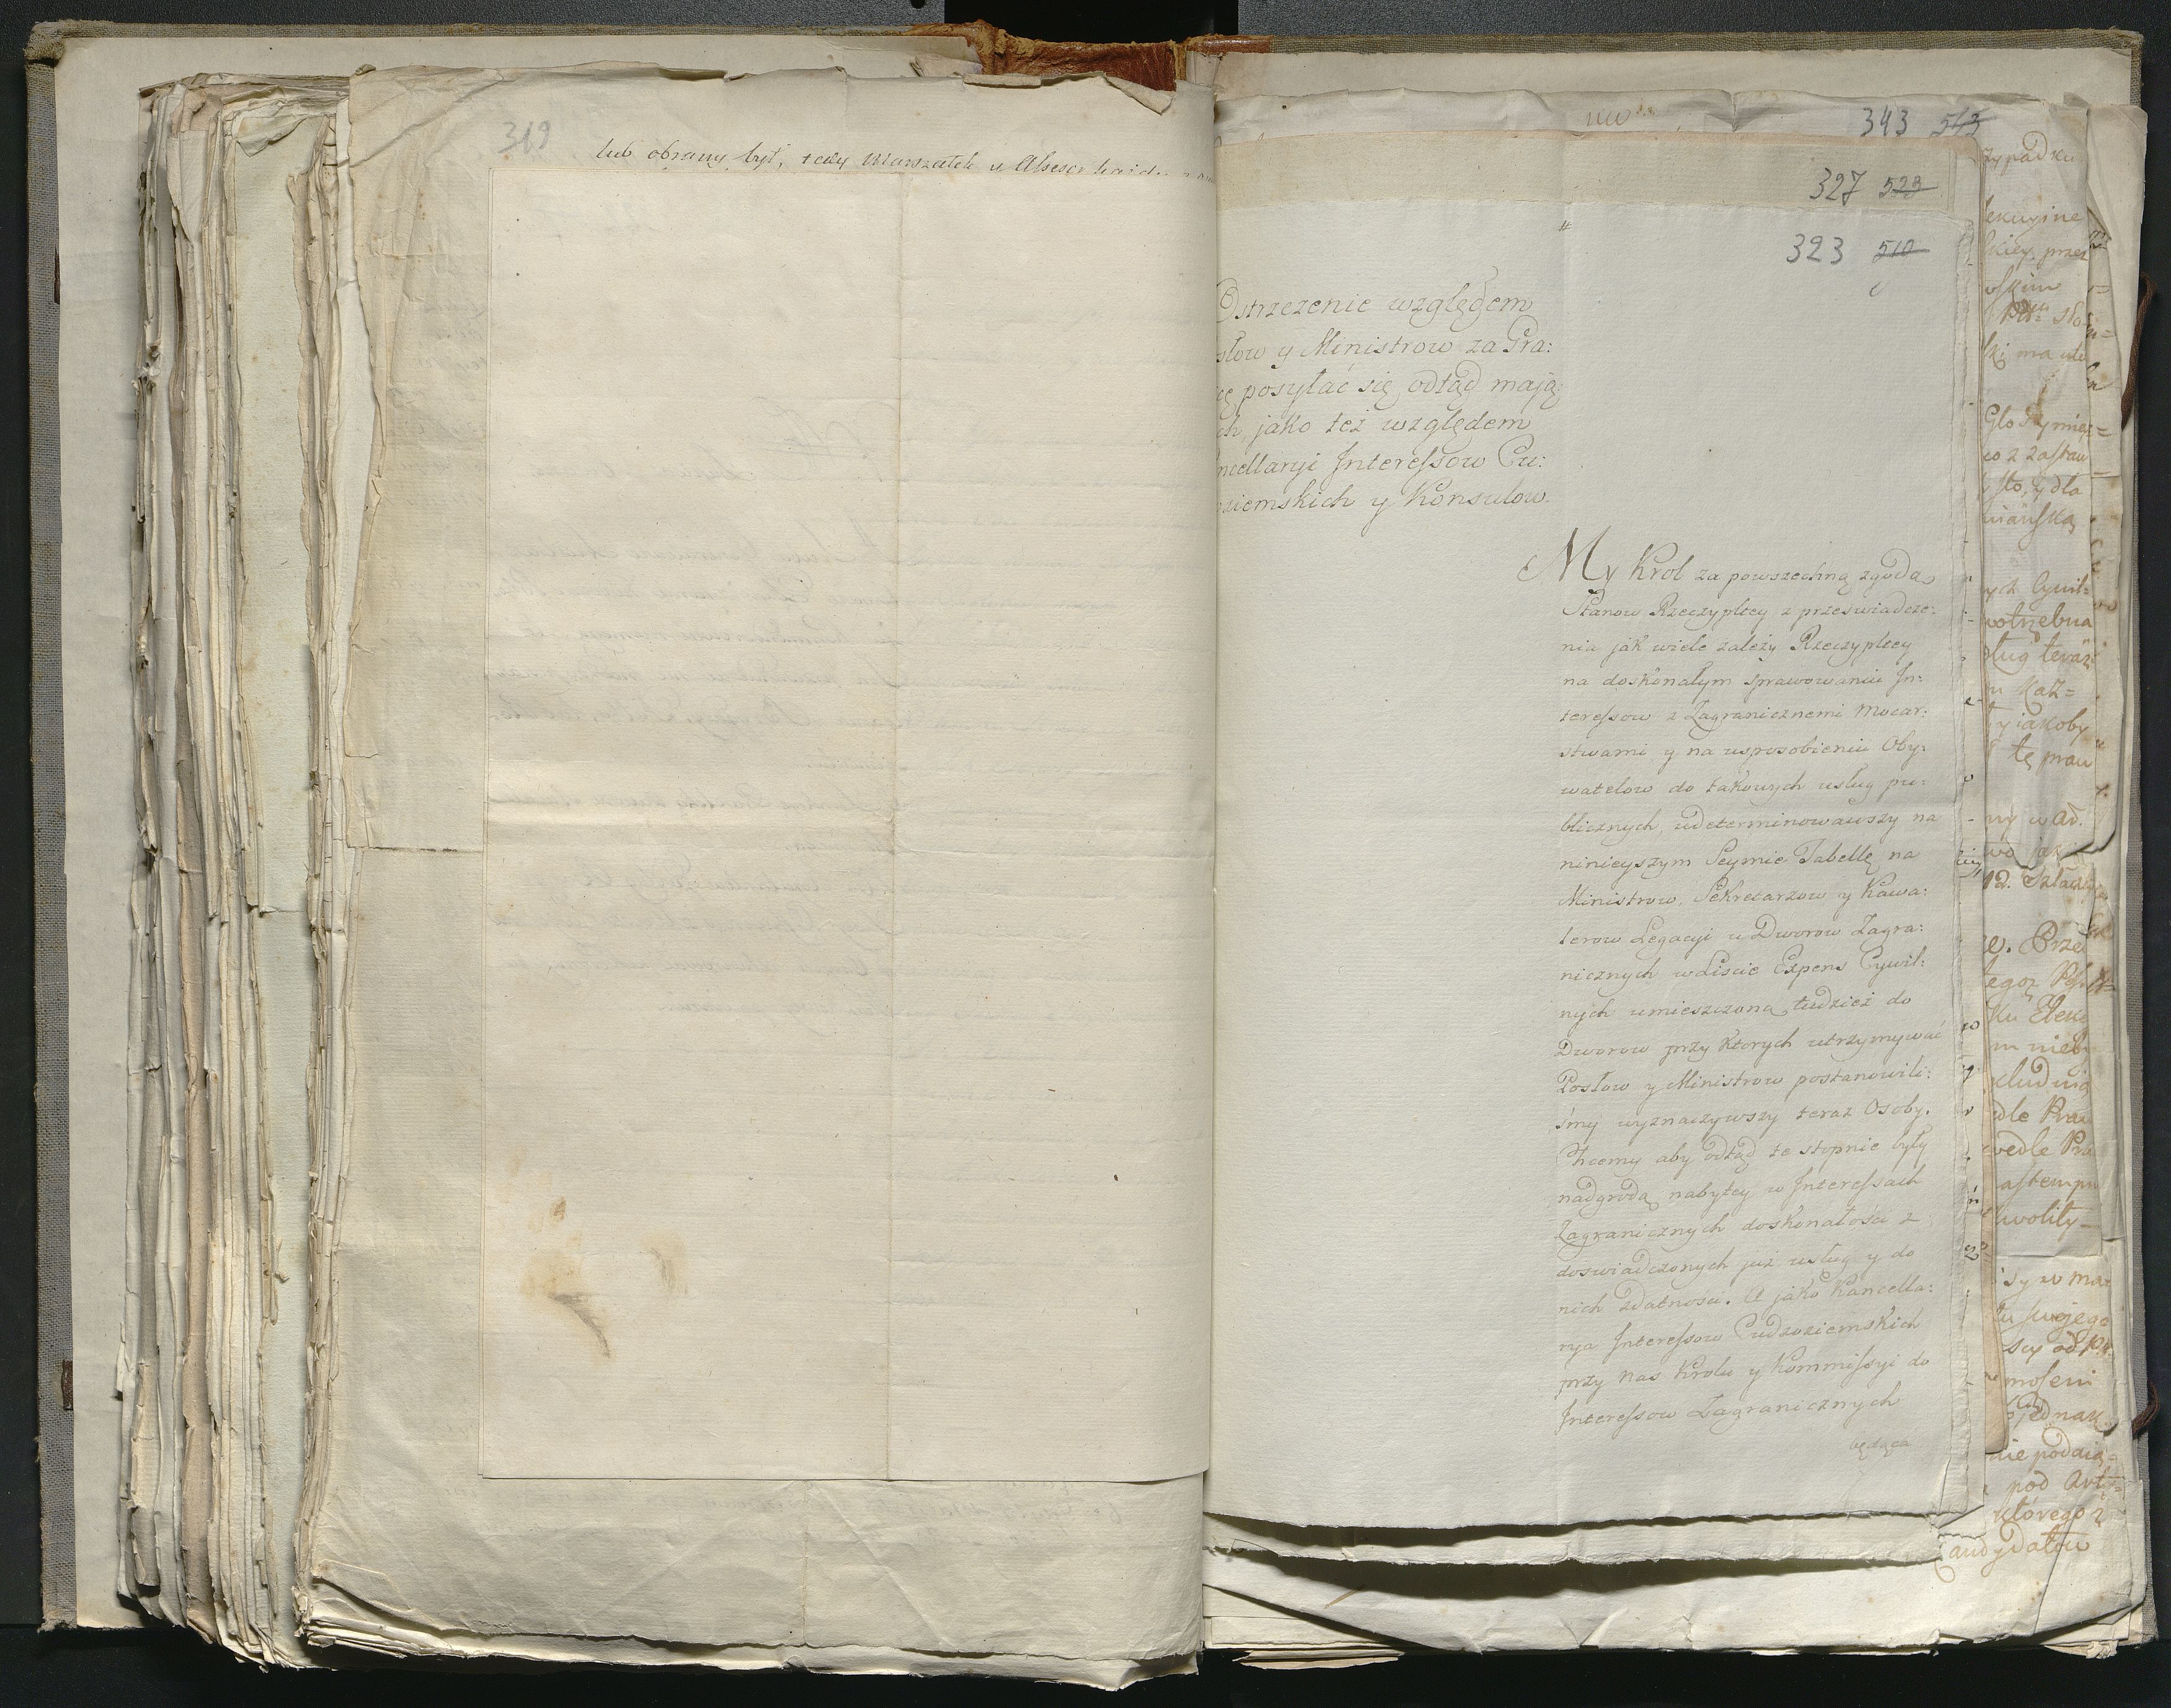 319
lub obrany był, tedy Marszałek y
343 543
327 523
#
323 510
Ostrzezenie względem
słow y Ministrow za Gra:
cę posyłać się odtąd mają:
ch, jako też względem
ncellaryi Interessow Cu:
ziemskich y Konsulow.
My Krol za powszechną zgodą
Stanow Rzeczypltey z przeswiadcze:
nia jak wiele zależy Rzeczyplcey
na doskonałym sprawowaniu In:
teressow z Zagranicznemi Mocar:
stwami y na usposobieniu Oby:
watelow do takowych usług pu:
blicznych, udeterminowawszy na
ninieyszym Seymie Tabellę na
Ministrow, Sekretarzow y Kawa:
lerow Legacyi u Dworow Zagra:
nicznych w Liscie Expens Cywil:
nych umieszczoną tudzież do
Dworow przy ktorych utrzymywać
Posłow y Ministrow postanowili:
śmy wyznaczywszy teraz Osoby.
Chcemy aby odtąd te stopnie były
nadgrodą nabytey w Interessach
Zagranicznych doskonałosci z
doswiadczonych już usług y do
nich zdatnosci. A jako Kancella:
rya Interessow Cudzoziemskich
przy nas Krolu y Kommissyi do
Interessow Zagranicznych
będąca
zypadku
ekucyine
kiey przez
Głos
wo z zastaw
sto, y dla
ych Cywil=
potrzebna
ług teraz
m kaz=
ty jakoby
tę praw
ny w ad.
12. Szlach
w. Prze
tegoż
m nieby
dle Praw
wedle Pra
astempn
wolity
sy w ma
tu swojego
jednak
nie podaią
pod Art:
ktorego z
Candydatow